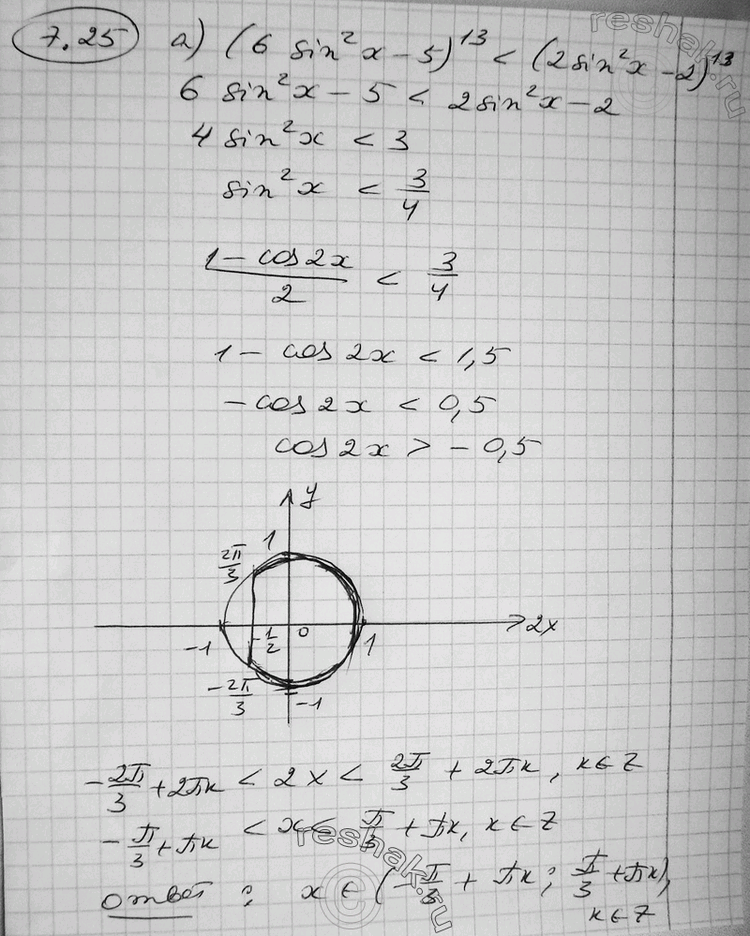 7.25 а) (6 sin²x - 5)¹³ < (2sin²x - 2)¹³
6 sin²x - 5 < 2sin²x - 2
4 sin²x < 3
sin²x < 3/4
(1 - cos2x)/2 < 3/4
1 - cos 2x < 1,5
-cos 2x < 0,5
cos 2x > -0,5
y
2π/3 1
-1 -1/2 0 1 2x
-2π/3 -1
-2π/3 + 2πk < 2x < 2π/3 + 2πk, k∈Z
-π/3 + πk < x < π/3 + πk, k∈Z
ответ: x ∈ (-π/3 + πk; π/3 + πk),
k∈Z
reshak.ru
reshak.ru